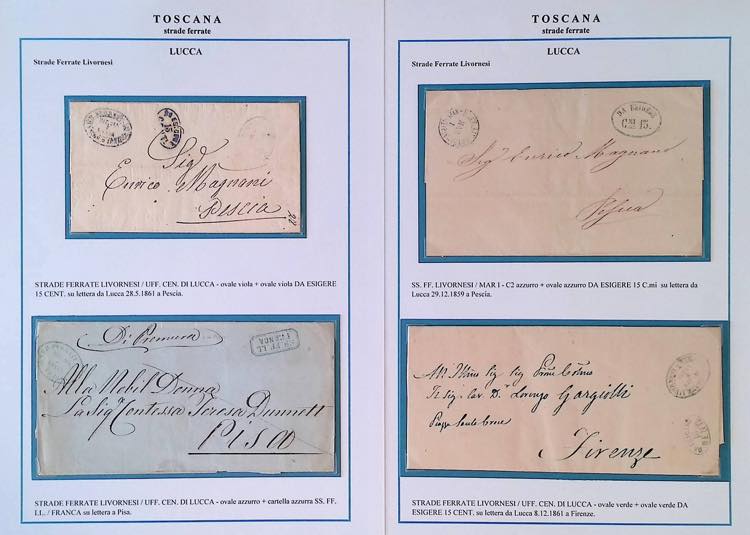 TOSCANA
strade ferrate
LUCCA
Strade Ferrate Livornesi
DA ESIGERE
15
Sig
Enrico Magnani
Pescia
22
STRADE FERRATE LIVORNESI / UFF. CEN. DI LUCCA - ovale viola + ovale viola DA ESIGERE
15 CENT. su lettera da Lucca 28.5.1861 a Pescia.
Di Premura
SS. FF. LI.
FRANCA
Alla Nobil Donna
La Sig.ra Contessa Teresa Dunnett
Pisa
STRADE FERRATE LIVORNESI / UFF. CEN. DI LUCCA - ovale azzurro + cartella azzurra SS. FF.
LI.. / FRANCA su lettera a Pisa.
TOSCANA
strade ferrate
LUCCA
Strade Ferrate Livornesi
DA ESIGERE
C.mi 15.
Sig. Enrico Magnani
Pescia
SS. FF. LIVORNESI / MAR I - C2 azzurro + ovale azzurro DA ESIGERE 15 C.mi su lettera da
Lucca 29.12.1859 a Pescia.
Il Sig. Cav. D. Lorenzo Gargiolli
Piazza Santa Croce
Firenze
STRADE FERRATE LIVORNESI / UFF. CEN. DI LUCCA - ovale verde + ovale verde DA
ESIGERE 15 CENT. su lettera da Lucca 8.12.1861 a Firenze.